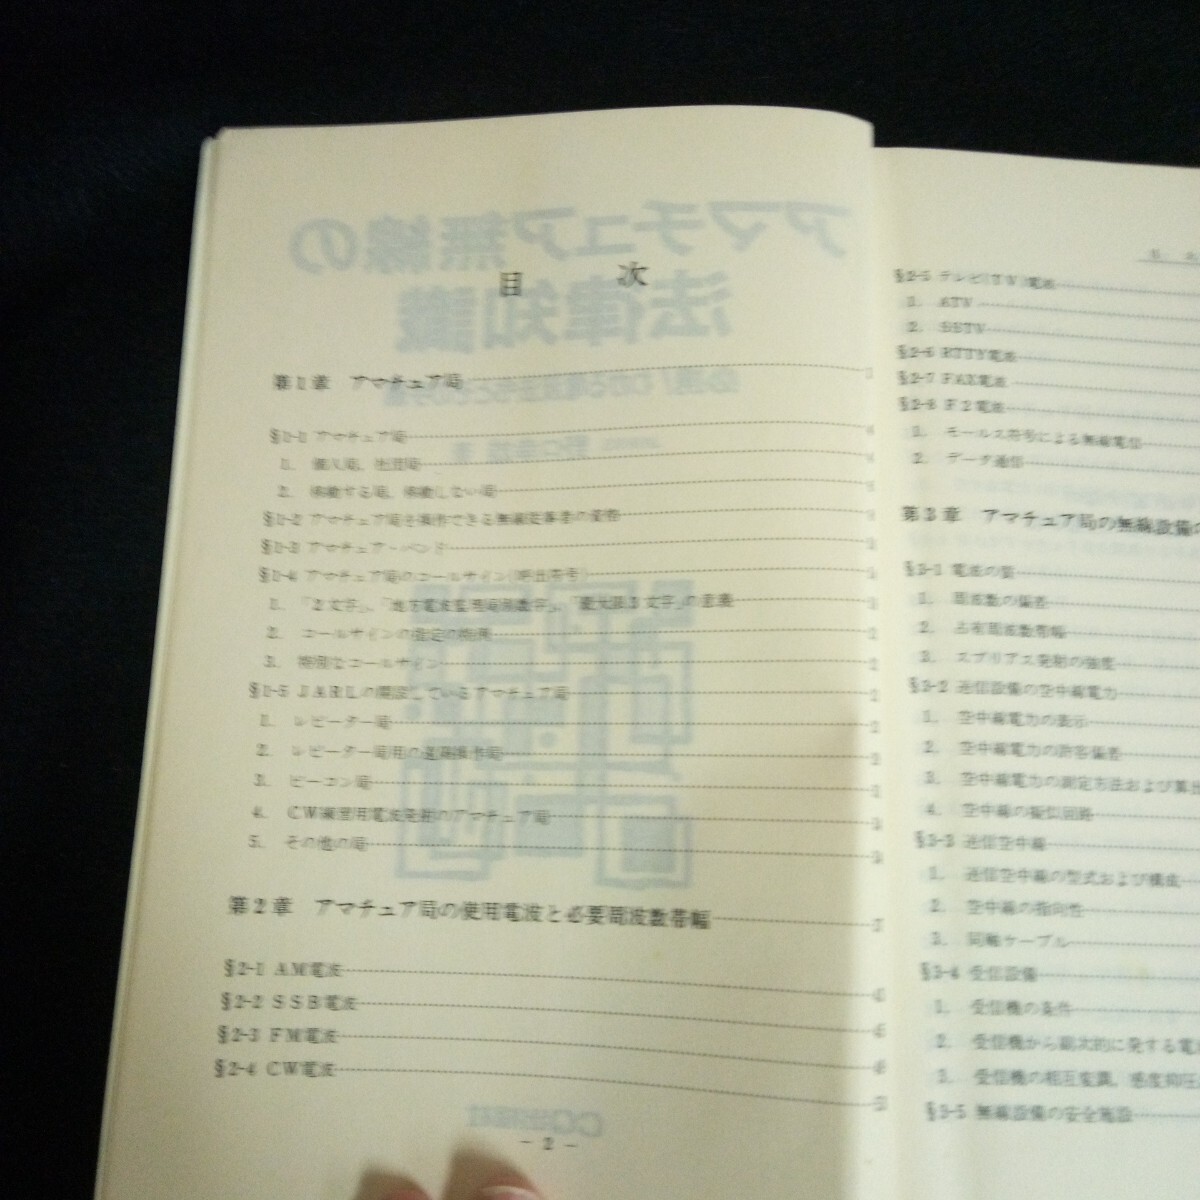 目次
第1章 アマチュア局
§1-1 アマチュア局
1. 個人局、社団局
2. 移動する局、移動しない局
§1-2 アマチュア局を操作できる無線従事者の資格
§1-3 アマチュア・バンド
§1-4 アマチュア局のコールサイン(呼出符号)
1. 「2文字」、「地方電波監理局別数字」、「最大限3文字」の意義
2. コールサインの指定の特例
3. 特別なコールサイン
§1-5 JARLの開設しているアマチュア局
1. レピーター局
2. レピーター局用の遠隔操作局
3. ビーコン局
4. CW練習用電波発射のアマチュア局
5. その他の局
第2章 アマチュア局の使用電波と必要周波数帯幅
§2-1 AM電波
§2-2 SSB電波
§2-3 FM電波
§2-4 CW電波
- 2 -
§2-5 テレビ(TV)電波
1. ATV
2. SSTV
§2-6 RTTY電波
§2-7 FAX電波
§2-8 F2電波
1. モールス符号による無線電信
2. データ通信
第3章 アマチュア局の無線設備の
§3-1 電波の質
1. 周波数の偏差
2. 占有周波数帯幅
3. スプリアス発射の強度
§3-2 送信設備の空中線電力
1. 空中線電力の表示
2. 空中線電力の許容偏差
3. 空中線電力の測定方法および算出
4. 空中線の擬似回路
§3-3 送信空中線
1. 送信空中線の型式および構成
2. 空中線の指向性
3. 同軸ケーブル
§3-4 受信設備
1. 受信機の条件
2. 受信機から副次的に発する電
3. 受信機の相互変調、感度抑圧
§3-5 無線設備の安全施設